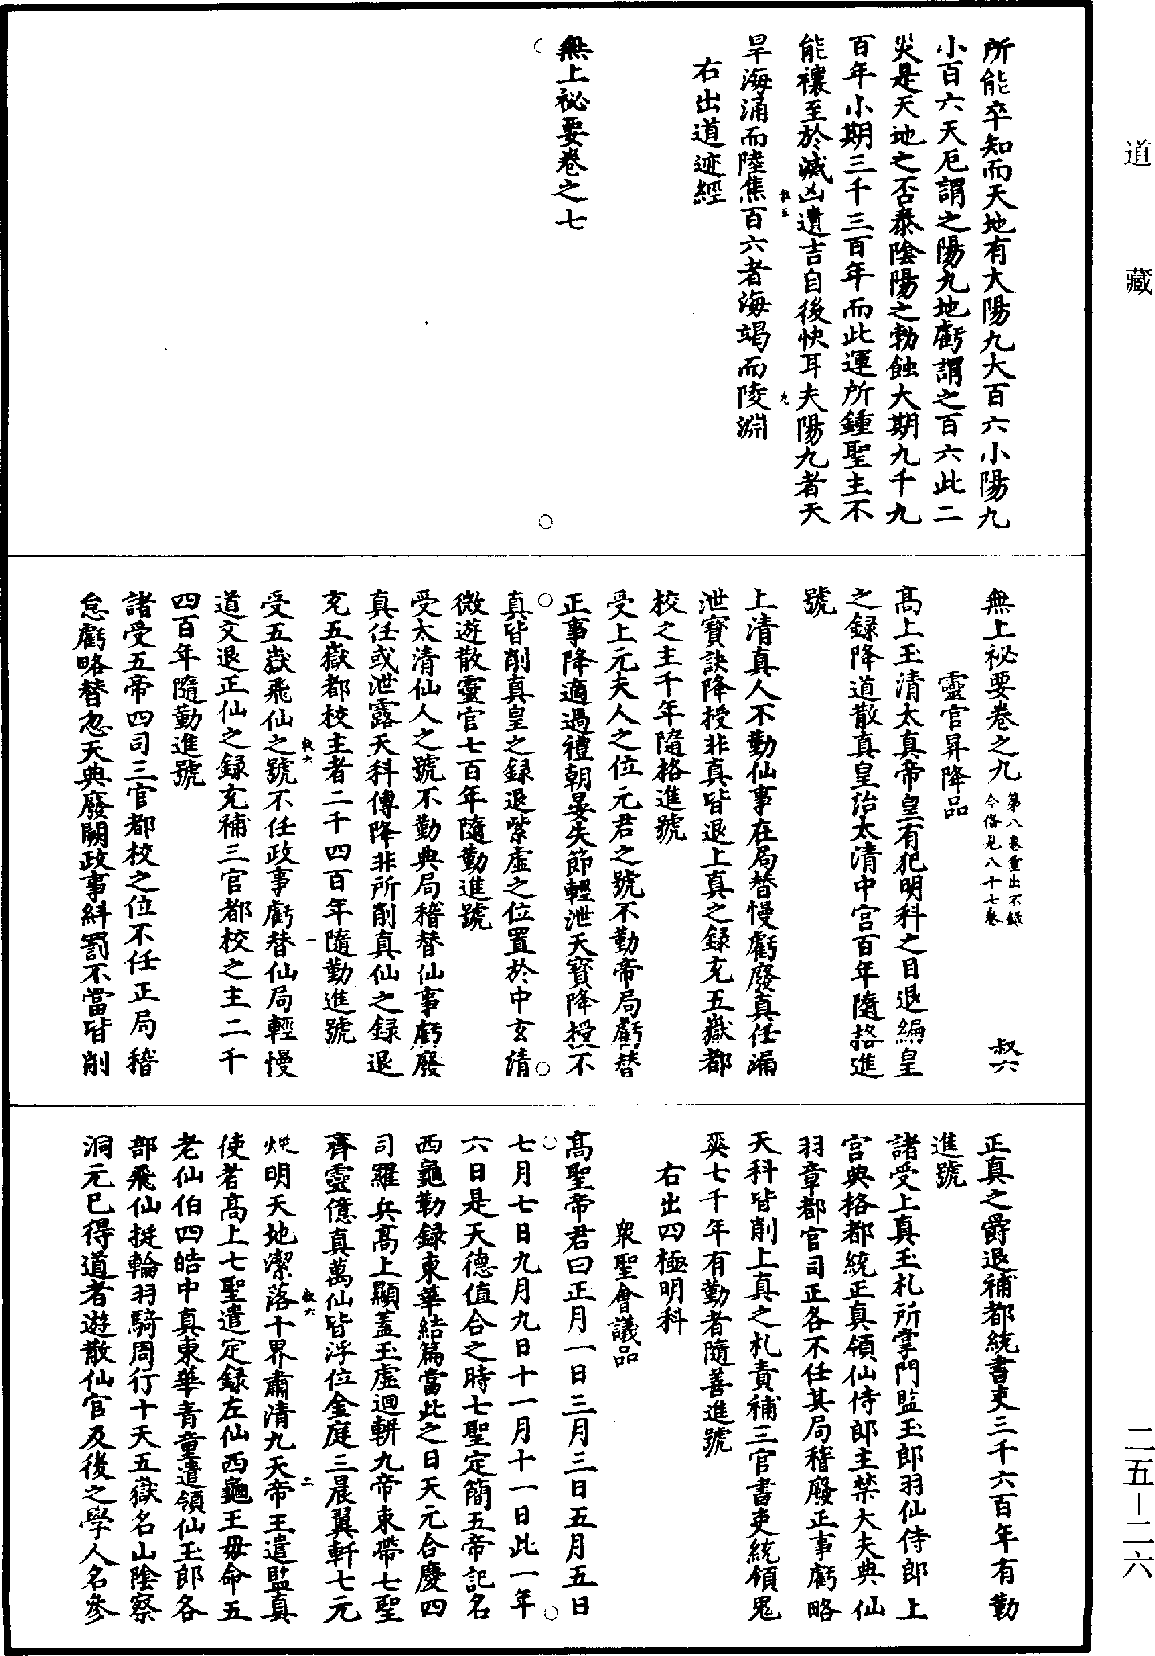 道藏
所能卒知而天地有大陽九大百六小陽九
小百六天厄謂之陽九地虧謂之百六此二
災是天地之否泰陰陽之勃蝕大期九千九
百年小期三千三百年而此運所鍾聖主不
能禳至於滅凶遺吉自後快耳夫陽九者天
旱海涌而陸焦百六者海竭而陵淵
右出道迹經
無上祕要卷之七
無上祕要卷之九 第八卷重出不錄 今俻見八十七卷 叔六
靈官昇降品
高上玉清太真帝皇有犯明科之目退編皇
之録降道散真皇治太清中宮百年隨格進
號
上清真人不勤仙事在局替慢虧廢真任漏
泄寶訣降授非真皆退上真之録充五嶽都
校之主千年隨格進號
受上元夫人之位元君之號不勤帝局虧替
正事降適過禮朝晏失節輕泄天寶降授不
真皆削真皇之録退紫虛之位置於中玄清
微遊散靈官七百年隨勤進號
受太清仙人之號不勤典局稽替仙事虧廢
真任或泄露天科傳降非所削真仙之録退
充五嶽都校主者二千四百年隨勤進號
受五嶽飛仙之號不任政事虧替仙局輕慢
道文退正仙之録充補三官都校之主二千
四百年隨勤進號
諸受五帝四司三官都校之位不任正局稽
怠虧略替忽天典廢闕政事糾罰不當皆削
正真之爵退補都統書吏三千六百年有勤
進號
諸受上真玉札所掌門監玉郎羽仙侍郎上
宮典格都統正真領仙侍郎主禁大夫典仙
羽章都官司正各不任其局稽廢正事虧略
天科皆削上真之札責補三官書吏統領鬼
爽七千年有勤者隨善進號
右出四極明科
衆聖會議品
高聖帝君曰正月一日三月三日五月五日
七月七日九月九日十一月十一日此一年
六日是天德值合之時七聖定簡五帝記名
西龜勒録東華結篇當此之日天元合慶四
司羅兵高上顯蓋玉虛迴輧九帝束帶七聖
齊靈億真萬仙皆浮位金庭三晨翼軒七元
煥明天地潔落十界肅清九天帝王遣監真
使者高上七聖遣定録左仙西龜王母命五
老仙伯四皓中真東華青童遣領仙玉郎各
部飛仙挺輪羽騎周行十天五嶽名山陰察
洞元已得道者遊散仙官及後之學人名參
二五-二六